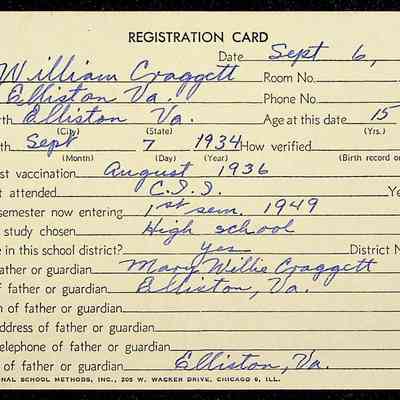 REGISTRATION CARD
Date Sept 6,
William Craggett Room No.
Elliston Va. Phone No.
rth Elliston Va. Age at this date 15
(City) (State) (Yrs.)
th Sept 7 1934 How verified
(Month) (Day) (Year) (Birth record or
st vaccination August 1936
t attended C.I.I. Ye
semester now entering 1st sem. 1949
study chosen High school
e in this school district? Yes District N
ather or guardian Mary Willie Craggett
f father or guardian Elliston, Va.
n of father or guardian
ddress of father or guardian
elephone of father or guardian
of father or guardian Elliston, Va.
NAL SCHOOL METHODS, INC., 205 W. WACKER DRIVE, CHICAGO 6, ILL.